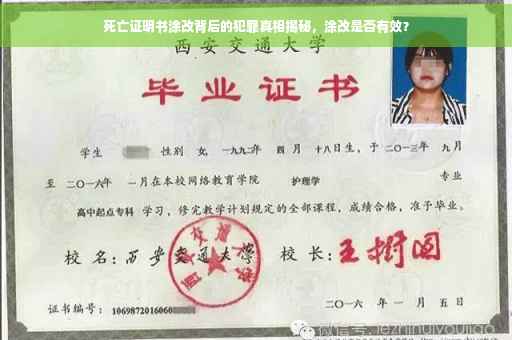 死亡证明书涂改背后的犯罪真相揭秘，涂改是否有效？
西安交通大学
毕业证书
学生 性别 女, 一九九二年 四月 十八日生, 于二〇一三年 九月
至 二〇一六年 一月在本校网络教育学院 护理学 专业
高中起点专科 学习, 修完教学计划规定的全部课程, 成绩合格, 准予毕业。
校 名: 西安交通大学 校 长: 王树国
西安交通大学
证书编号: 1069872016060
二〇一六 年 一 月 五 日
微信号: jezhihuiyoujiao